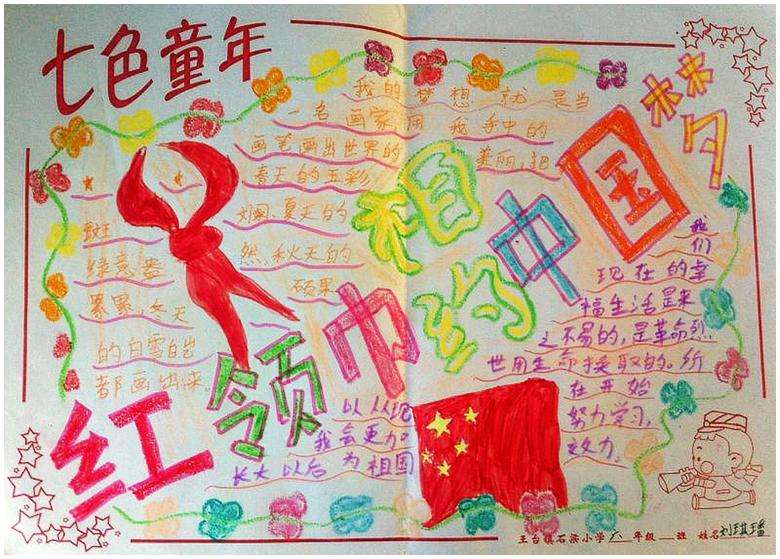 七色童年
红领巾
相约
中国梦
我的梦想就是当
一名画家用我手中的
画笔画出世界的美丽,把
春天的五彩
斑斓、夏天的
绿意盎然、秋天的
硕果累累,冬天
的白雪皑皑
都画出来。
我们
现在的幸
福生活是来
之不易的,是革命烈
世用生命换取的。所
以从现在开始
我会更力 努力学习,
长大以后为祖国效力。
王台镇石梁小学六年级 班 姓名刘琪瑶